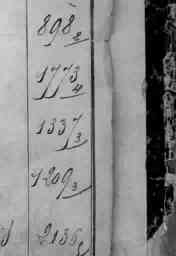 898 2
1773 4
1337 3
1209 3
2136